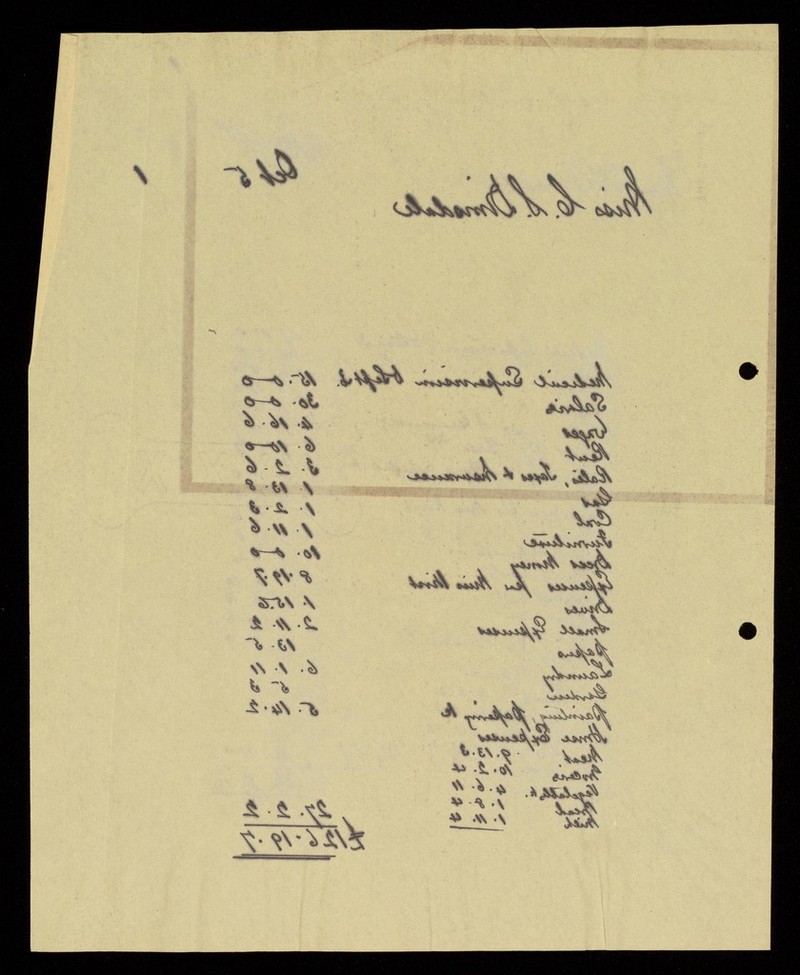 Oct 5
1
Miss C. S. Dimsdale
Medical Supervision to Sept 3. 15. 0 0
Salaries 30. 0 0
Wages 4. 16. 6
Rent 6. 10 0
Rates, Taxes & Insurance 3. 2. 6
Gas 1. 13. 8
Coal 1. 2. 3
Furniture 1. 11. 6
Dress Money 10. 0 0
Expenses for Miss 8. 19. 7
Drives 1. 15. 6
Small Expenses 2. 11. 2
Papers 13. 5
Laundry 6. 1. 11
5 3
Painting, Papering &c 5. 14. 2
House Expenses
Meat 9. 13. 3
Groceries 10. 2. 4
Vegetables &c. 4. 6. 11
Bread 1. 8. 4
Milk 1. 11. 4
27. 2. 2
£126. 19. 7